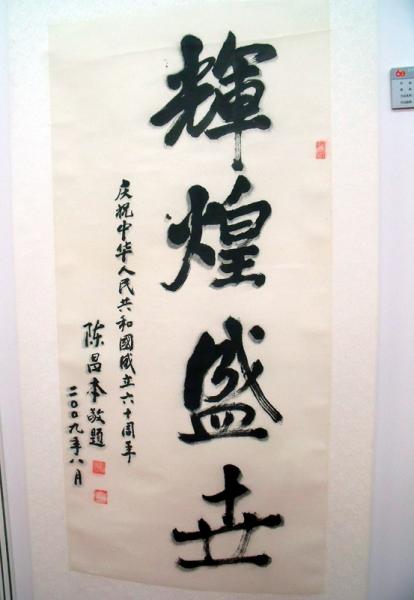 輝煌盛世
庆祝中华人民共和國成立六十周年
陈昌本敬題
二〇〇九年八月
60